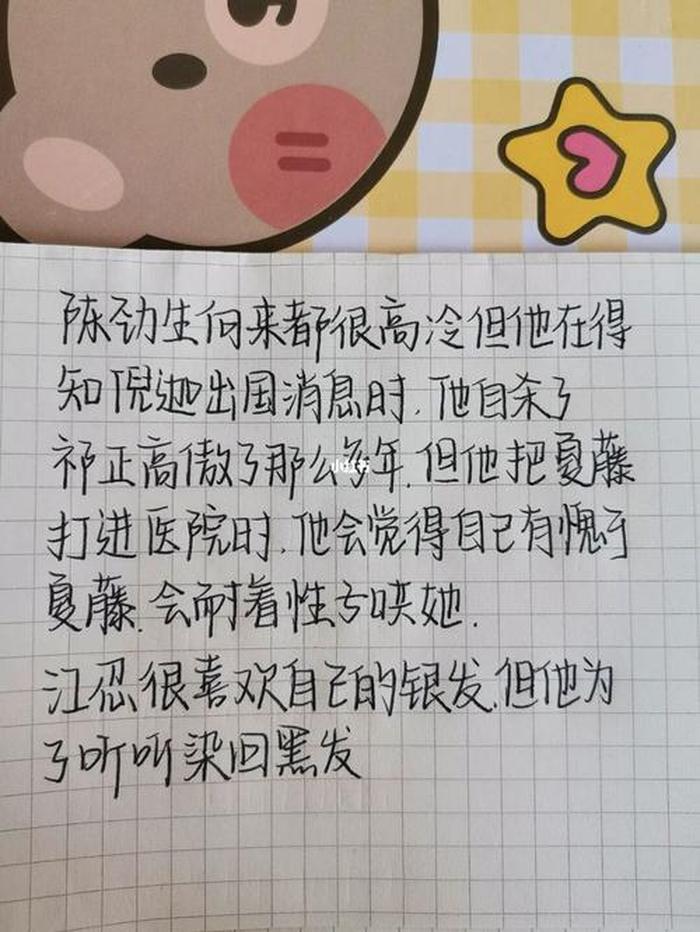 陈劲生向来都很高冷但他在得
知倪迦出国消息时.他自杀了
祁正高傲了那么多年.但他把夏藤
打进医院时.他会觉得自己有愧于
夏藤.会耐着性子哄她.
江忍很喜欢自己的银发.但他为
了听听染回黑发
小红书